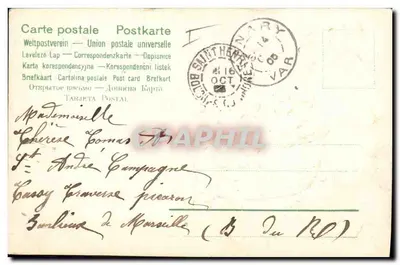 Carte postale Postkarte
Weltpostverein — Union postale universelle
Levelező Lap — Correspondenzkarte — Dopisnice
Karta korespondencyjna — Korespondenční lístek
Brefkaart — Cartolina postale — Post card — Brefkort
Открытое письмо — Дописна Карта
TARJETA POSTAL
NARY
VAR
SAINT
16
OCT
CPR
Mademoiselle
Thérèse Tomas
St André Campagne
Traverse
Banlieue de Marseille (B du R)